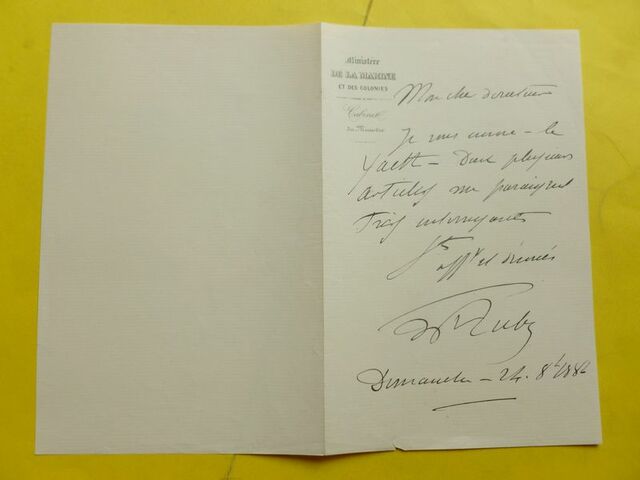 Ministère
DE LA MARINE
ET DES COLONIES
Cabinet
du Ministre
Mon cher directeur
Je vous envoie – le
Yacht – Dont plusieurs
articles me paraissent
Très intéressants
aff et dévoués
Dimanche – 24. 8bre 1886